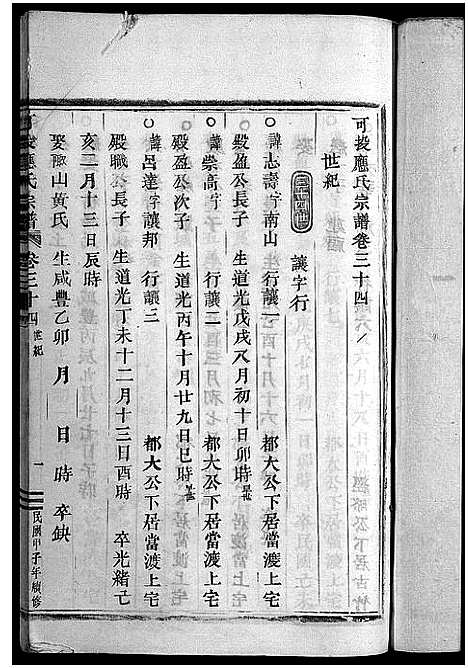 可投應氏宗譜卷三十四
世紀
讓字行
諱志壽字南山 行讓一 都大公下居當渡上宅
殿盈公長子 生道光戊戌八月初十日卯時
諱崇高字 行讓二 都大公下居當渡上宅
殿盈公次子 生道光丙午十月廿九日巳時
諱呂達字讓邦 行讓三 都大公下居當渡上宅
殿職公長子 生道光丁未十二月十三日酉時 卒光緒己
亥二月十三日辰時
娶 山黃氏 生咸豐乙卯 月 日 時 卒缺
應氏宗譜 卷三十四 世紀 一 民國甲子年續修